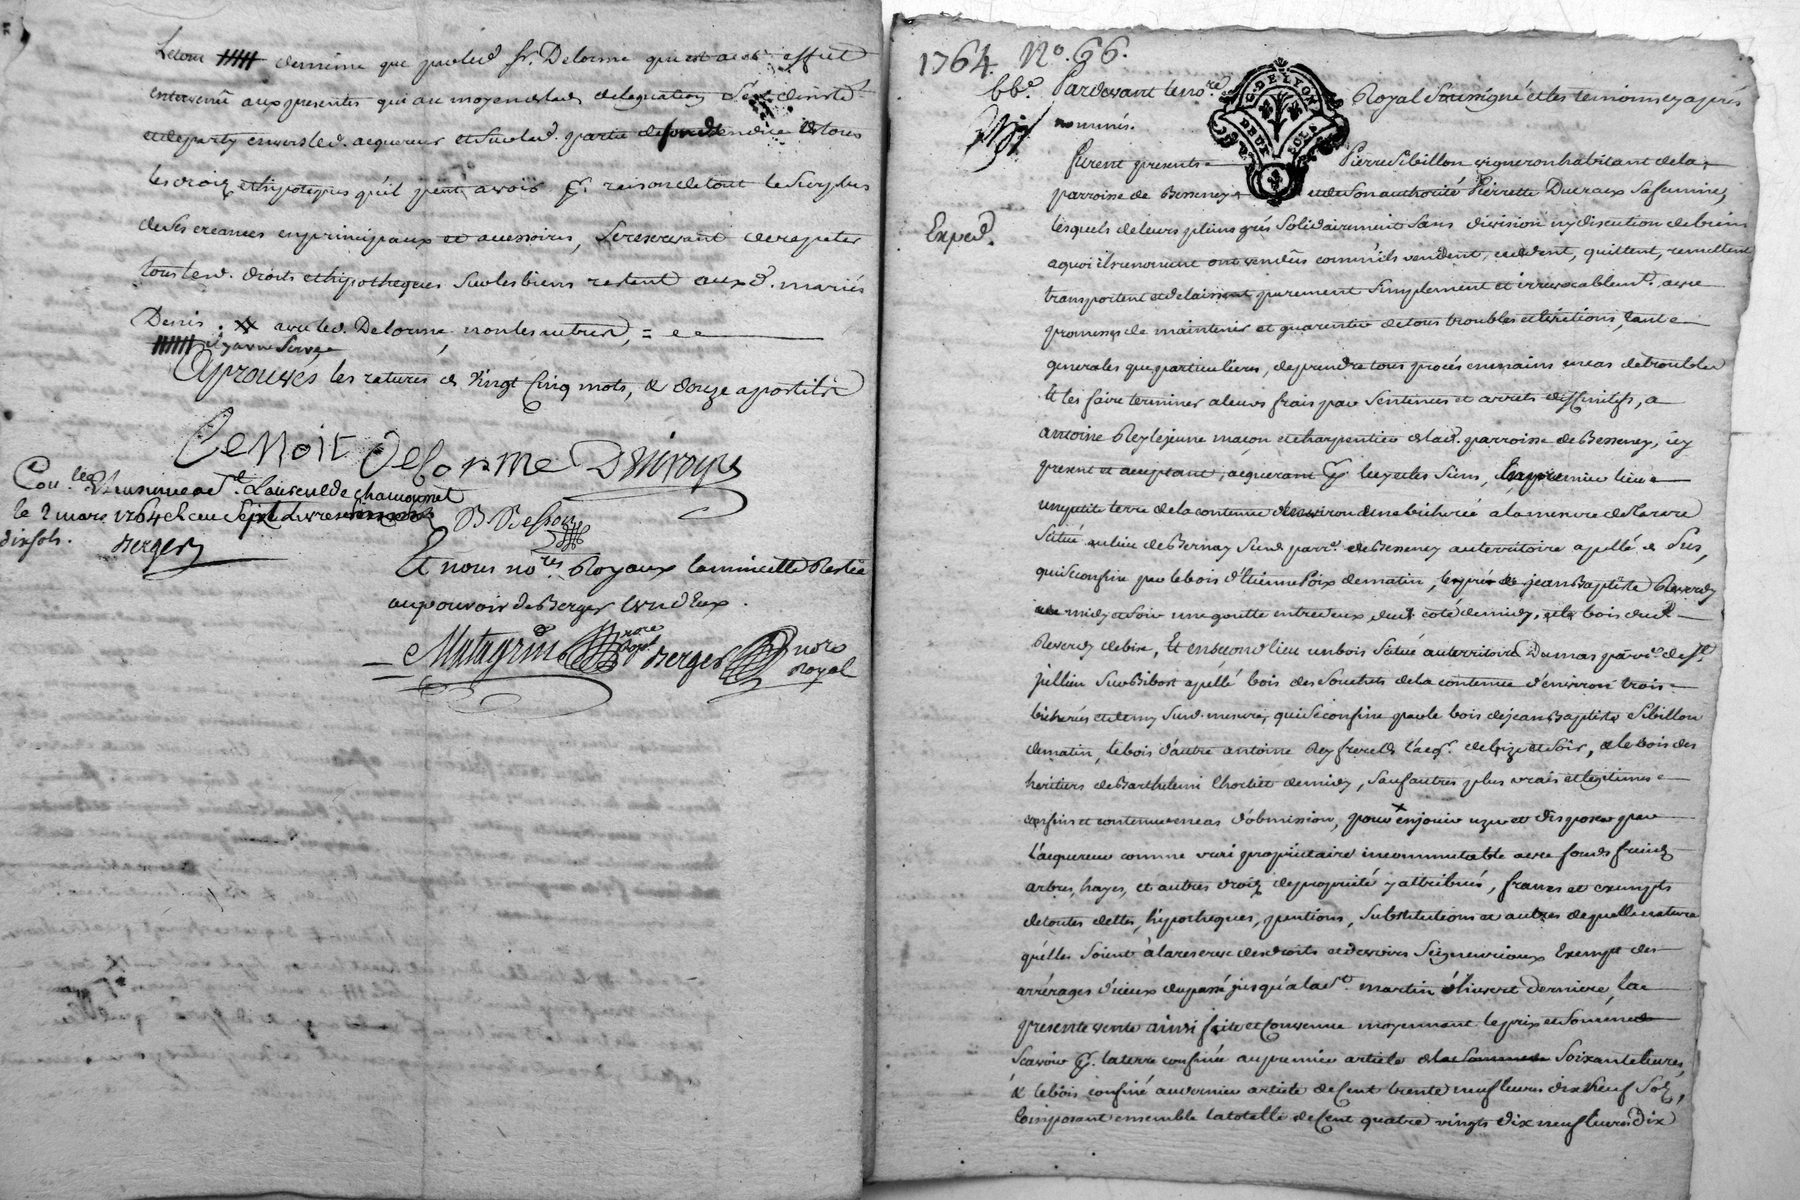 de meme que par led. Sr. Delorme qui est a cet effet
intervenu aux presentes qui au moyen delad. delegation Sest desisté
et departy envers led. acquereur et Sur lad. partie de fonds vendue de tous
les droits et hipoteques qu'il peut avoir pr. raison de tout le Surplus
de Ses creances en principaux et accessoires, Se reservant de repeter
tous lesd. droits et hipotheques Sur les biens restant auxd. mariés
Denis : avec led. Delorme, non les autres,
Aprouvés les ratures de Vingt Cinq mots, & douze apostilés
Benoit Delorme
B. Besson
Con.lée a Ste. Laurent de chamousset
le 2 mars 1764 Reçu Sept Livres
dix sols. Berger
Et nous no.res Royaux la minutte Restée
au pouvoir de Berger L'un d'Eux.
Matagrin no.re Roy.l Berger no.re Royal
1764. No. 66.
bb.e Pardevant le no.re Royal Soussigné et les temoins cy après
nommés.
Furent presents Pierre Sibillon vigneron habitant de la
parroisse de Bessenay et de Son authorité Pierrette Ducraux Sa femme,
Exped.
lesquels de leurs pleins grés Solidairement Sans division ny discution de biens
a quoi ils renoncent ont vendus comm'ils vendent, ceddent, quittent, remettent
transportent et delaissent purement Simplement et irrevocablem.t avec
promesse de maintenir et guarentir de tous troubles et evictions, tant
generales que particulieres, de prendre tous procés en mains en cas de troubles
Et les faire terminer a leurs frais par Sentences et arrets deffinitifs, a
antoine Rey le jeune maçon et charpentier delad. parroisse de Bessenay, icy
present et acceptant, acquerant pr. luy et les Siens, En premier lieu
une petite terre de la contenue d'environ une bicherée a la mesure de Tarare
Scitué au lieu de Bernay Susd. parr.e de Bessenay au territoire apellé de Sus,
qui Se confine par le bois d'Etienne Poix de matin, le pré de jean Baptiste Reverdy
de midy et Soir une goutte entre deux, du coté de midy, et le bois dud.
Reverdy de bise, Et en Second lieu un bois Scitué au territoire Dumas parr.e de St.
jullien Sur Bibost apellé bois des Souchets de la contenue d'environ trois
bicherés et demy Susd. mesure, qui Se confine par le bois de jean Baptiste Sibillon
de matin, le bois d'autre antoine Rey frere de l'acqr. de bize et Soir, & le bois des
heritiers de Barthelemi Chorliet de midy, Sauf autres plus vrais et legitimes
confins et contenue en cas d'obmission, pour en jouir uzer et disposer par
l'acquereur comme vrai proprietaire incommutable avec fonds fruits
arbres, hayes, et autres droits de proprieté y attribués, francs et exempts
de toutes dettes, hipotheques, pentions, Substitutions et autres de quelle nature
qu'elles Soient à la reserve des droits et devoirs Seigneuriaux Exempt des
arrérages d'iceux du passé jusqu'à la St. martin d'hiver derniere, la
presente vente ainsi faite et Convenue moyennant le prix et Somme
Scavoir pr. la terre confinée au premier article Soixante livres,
& le bois confiné au dernier article de Cent trente neuf livres dix Neuf Sols,
Composant ensemble la totalle de Cent quatre vingts dix neuf livres Dix